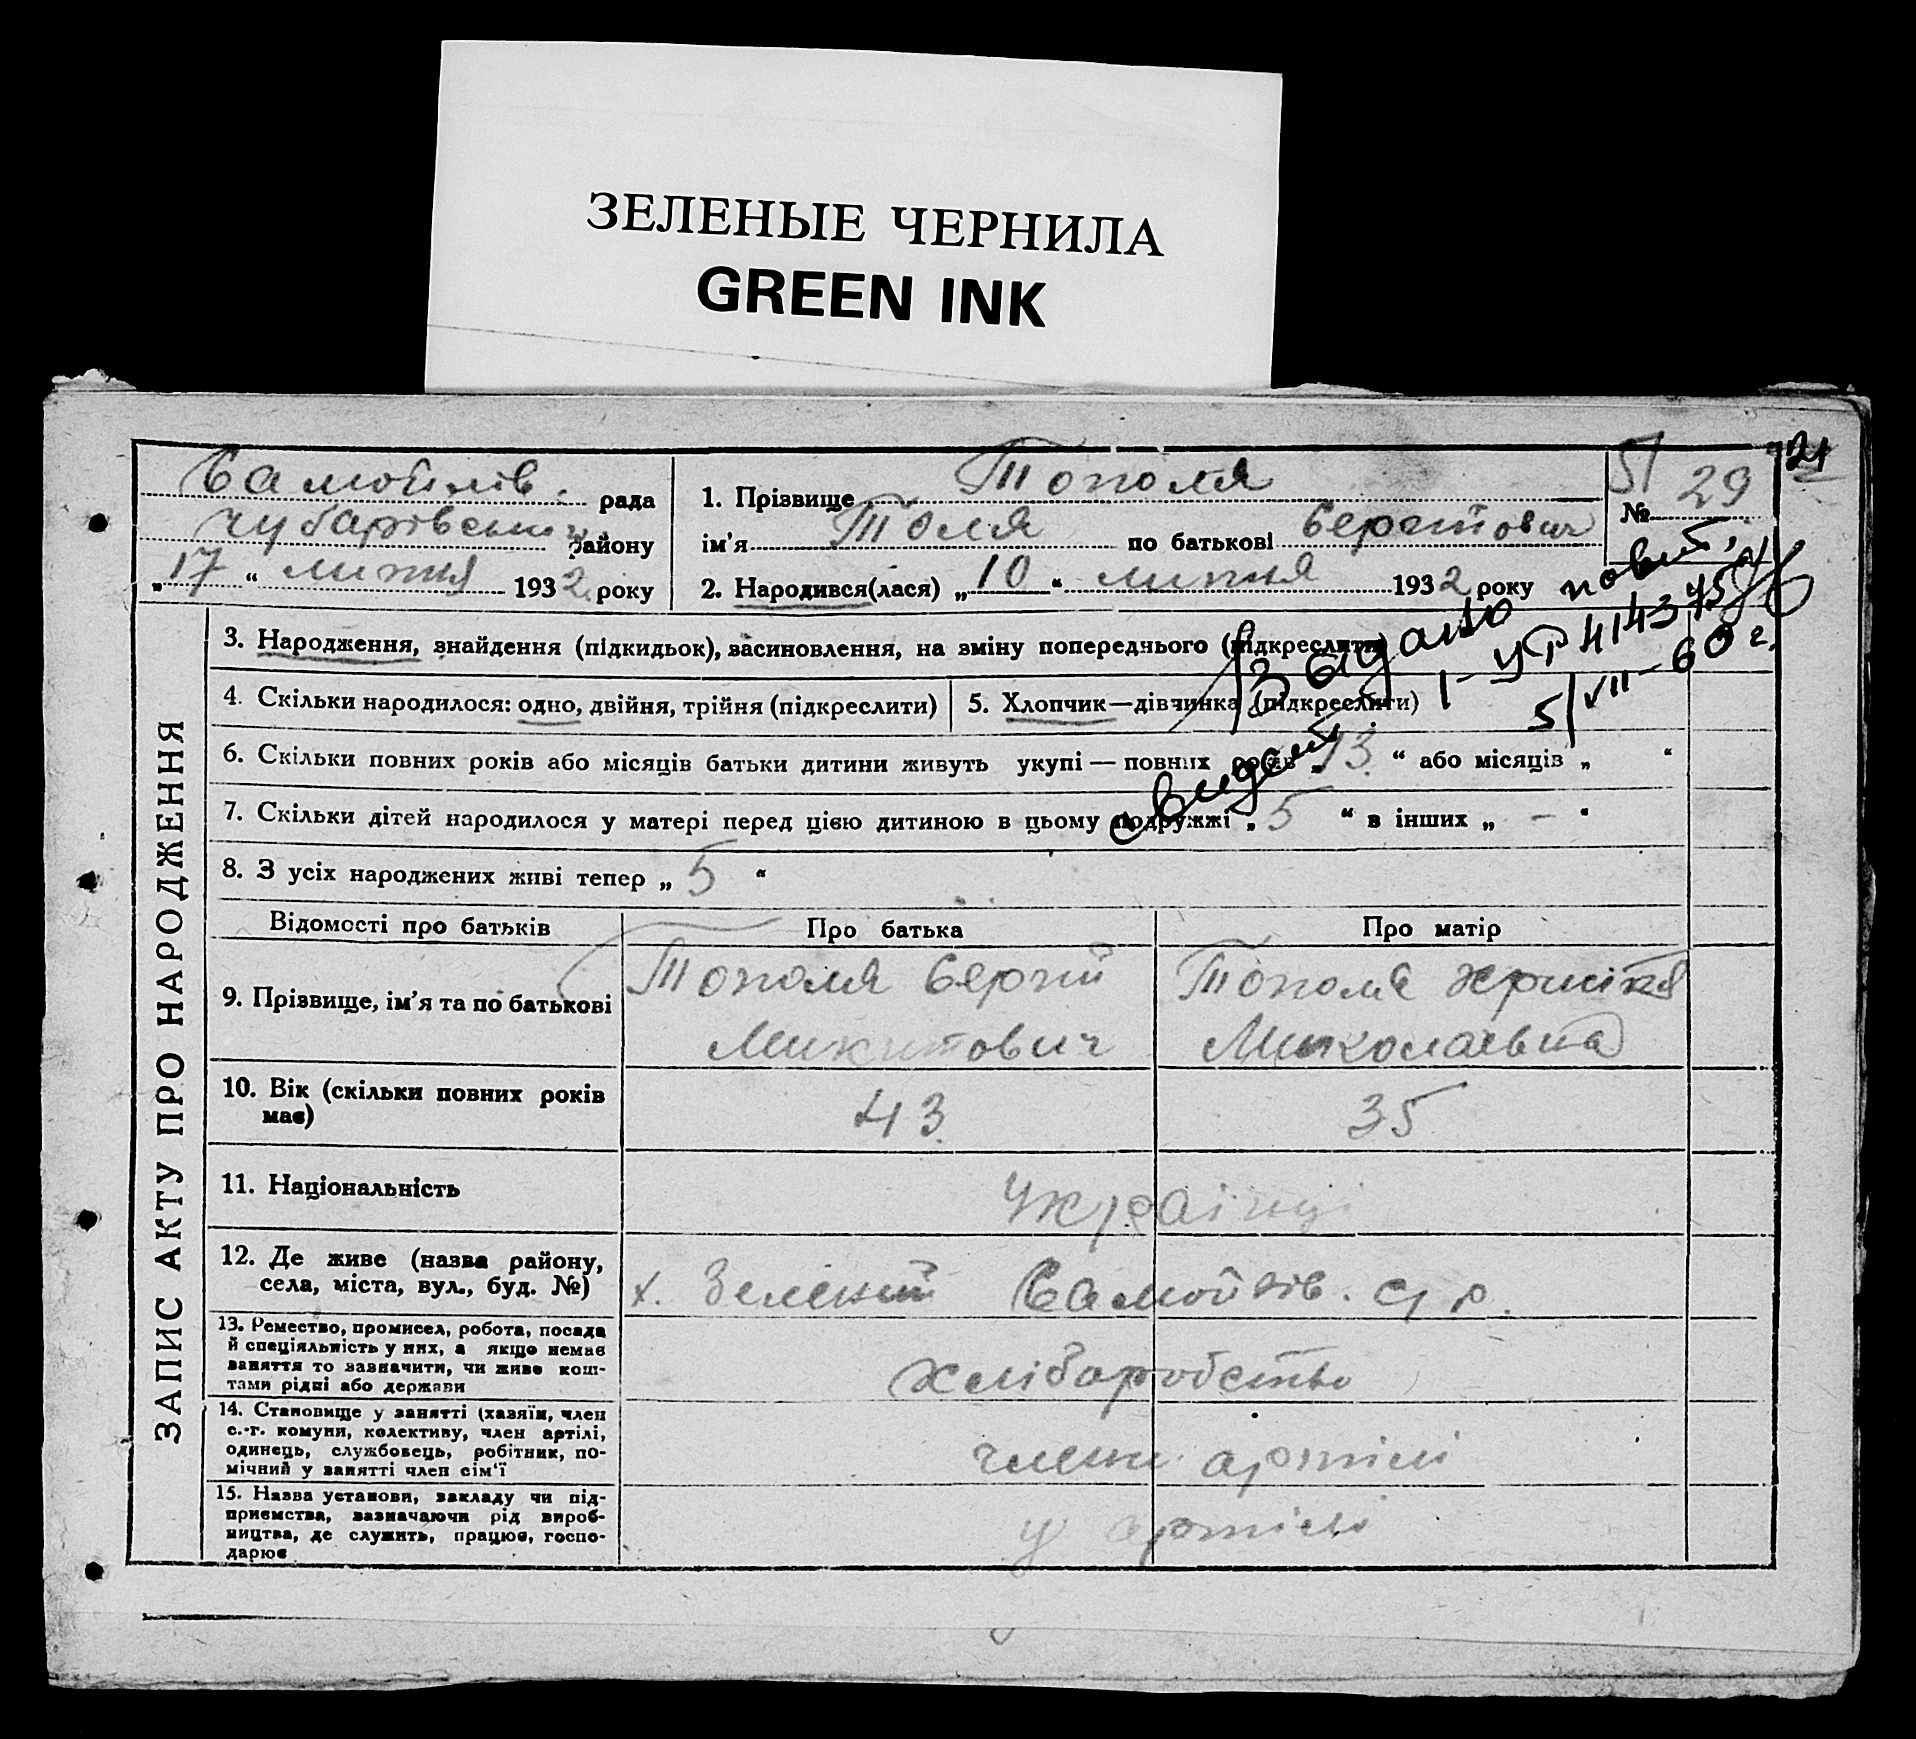 ЗЕЛЕНЫЕ ЧЕРНИЛА
GREEN INK
21
Самойлів. рада
Чубарівськ району
„17“ липня 1932 року
1. Прізвище Тополя
ім'я Толя по батькові Сергійович
2. Народився(лася) „10“ липня 1932 року
51
№ 29
повит.
Видано 1-УР 414375
5/VII-60 г.
свидет
ЗАПИС АКТУ ПРО НАРОДЖЕННЯ
3. Народження, знайдення (підкидьок), васиновлення, на зміну попереднього (підкреслити)
4. Скільки народилося: одно, двійня, трійня (підкреслити)
5. Хлопчик—дівчинка (підкреслити)
6. Скільки повних років або місяців батьки дитини живуть укупі — повних років „13“ або місяців „ “
7. Скільки дітей народилося у матері перед цією дитиною в цьому подружжі „5“ в інших „ – “
8. З усіх народжених живі тепер „5“
Відомості про батьків
Про батька
Про матір
9. Прізвище, ім'я та по батькові
Тополя Сергій
Микитович
Тополя Христя
Миколаєвна
10. Вік (скільки повних років
має)
43
35
11. Національність
Українці
12. Де живе (назва району,
села, міста, вул., буд. №)
х. Зелений Самойлів. с/р.
13. Ремество, промисел, робота, посада
й спеціяльність у них, а якщо немає
заняття то зазначити, чи живе кош-
тами рідні або держави
хліборобство
14. Становище у занятті (хазяїн, член
с.-г. комуни, колективу, член артілі,
одинець, службовець, робітник, по-
мічний у занятті член сім'ї
члени артілі
15. Назва установи, закладу чи під-
приємства, зазначаючи рід вироб-
ництва, де служить, працює, госпо-
дарює
у артілі